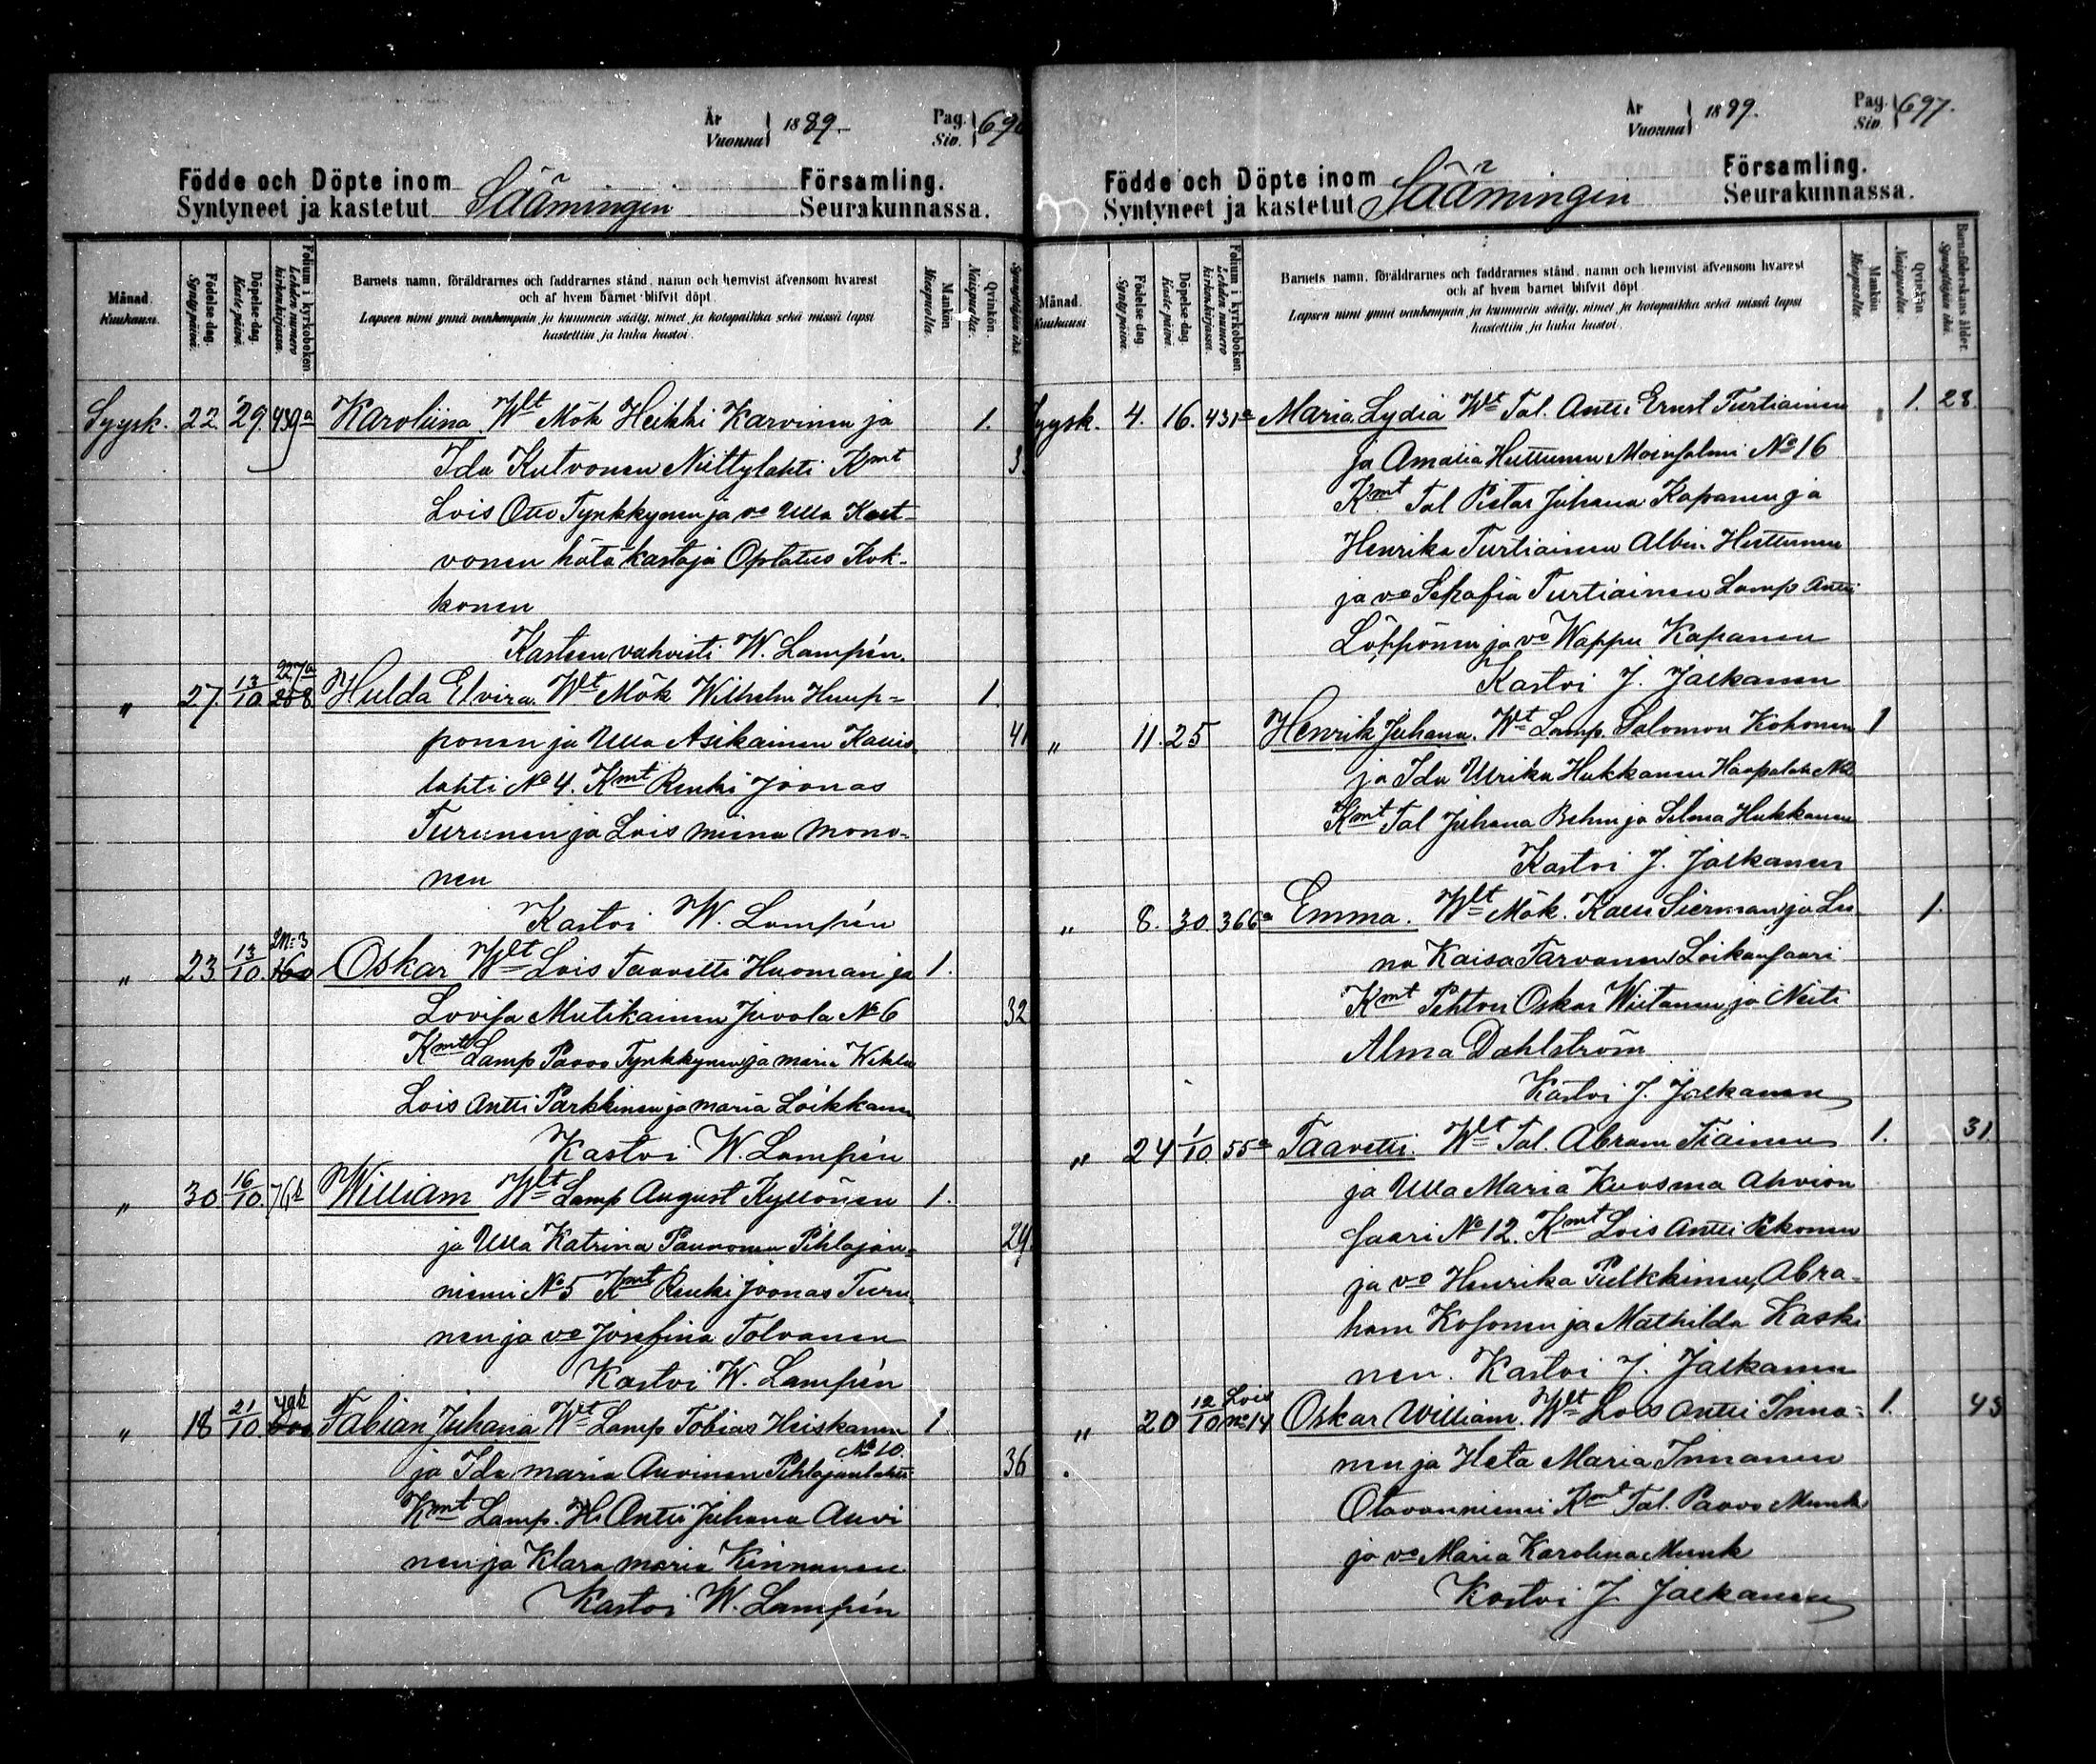 År
Vuonna 1889.
Pag.
Siv. 696
Födde och Döpte inom Säämingin Församling.
Syntyneet ja kastetut Seurakunnassa.
Månad.
Kuukausi.
Födelse dag.
Synty päivä.
Döpelse dag.
Kaste päivä.
Folium i kyrkoboken.
Lehden numero kirkonkirjassa.
Barnets namn, föräldrarnes och faddrarnes stånd, namn och hemvist äfvensom hvarest
och af hvem barnet blifvit döpt.
Lapsen nimi ynnä vanhempain ja kummein sääty, nimet ja kotopaikka sekä missä lapsi
kastettiin ja kuka kastoi.
Mankön
Miespuolta.
Qvinkön.
Naispuolta.
Synnyttäjän ikä.
Syysk. 22. 29. 439a Karoliina Wlt Mök Heikki Karvinen ja 1.
Ida Kutvonen Niittylahti Kmt 3
Lois Otto Tynkkynen ja vo Ulla Kut-
vonen hätäkastaja Optatus Kok-
konen
Kasteen vahvisti W. Lampén.
" 27. 13/10. 227a 258 Hulda Elvira Wlt Mök Wilhelm Hump- 1.
ponen ja Ulla Asikainen Kauis 41
lahti No 4. Kmt Renki Joonas
Turunen ja Lois Miina Mono-
nen
Kastoi W. Lampén
" 23 13/10. 160 Oskar Wlt Lois Taavetti Huoman ja 1.
Lovisa Mutikainen Juvola No 6 32
Kmt Lamp Paavo Tynkkynen ja Maria
Lois Antti Parkkinen ja Maria Loikkanen
Kastoi W. Lampén
" 30 16/10. 76b William Wlt Lamp August Kyllönen 1.
ja Ulla Katrina Paunonen Pihlajan- 29
niemi No 5 Kmt Renki Joonas Turu-
nen ja vo Josefina Tolvanen
Kastoi W. Lampén
" 18 21/10 Fabian Juhana Wlt Lamp Tobias Heiskanen 1.
No 10.
ja Ida Maria Auvinen Pihlajanlahti 36
Kmt Lamp. H. Antti Juhana Auvi
nen ja Klara Maria Kinnunen
Kastoi W. Lampén
År
Vuonna 1889.
Pag.
Siv. 697.
Födde och Döpte inom Säämingin Församling.
Syntyneet ja kastetut Seurakunnassa.
Månad.
Kuukausi
Födelse dag.
Synty päivä.
Döpelse dag.
Kaste päivä.
Folium i kyrkoboken
Lehden numero kirkonkirjassa.
Barnets namn, föräldrarnes och faddrarnes stånd, namn och hemvist äfvensom hvarest
och af hvem barnet blifvit döpt
Lapsen nimi ynnä vanhempain ja kummein sääty, nimet ja kotopaikka sekä missä lapsi
kastettiin ja kuka kastoi.
Mankön
Miespuolta.
Qvinkön
Naispuolta.
Barnaföderskans ålder.
Synnyttäjän ikä.
Syysk. 4. 16. 431a Maria Lydia Wlt Tal. Antti Ernst Turtiainen 1. 28.
ja Amalia Huttunen Moinsalmi No 16
Kmt Tal Pietar Juhana Kapanen ja
Henrika Turtiainen Albin Huttunen
ja vo Sehafia Turtiainen Lamp Antti
Löppönen ja vo Wappu Kapanen
Kastoi J. Jalkanen
" 11. 25 Henrik Juhana. Wlt Lamp. Salomon Kohonen 1
ja Ida Ulrika Hukkanen
Kmt Tal Juhana Behm ja Selma Hukkanen
Kastoi J. Jalkanen
" 8. 30 366a Emma. Wlt Mök. Kalle Sierman ja Lee- 1.
na Kaisa Tarvanen Loikansaari
Kmt Pehtori Oskar Wiitanen ja Neiti
Alma Dahlström
Kastoi J. Jalkanen
" 24 1/10. 55a Taavetti. Wlt Tal. Abram Tiainen 1. 31
ja Ulla Maria Kuosma Ahvion
saari No 12. Kmt Lois Antti Pekonen
ja vo Henrika Pulkkinen, Abra-
ham Kosonen ja Mathilda Kaski
nen. Kastoi J. Jalkanen
" 20 12/10 Lois no 14 Oskar William. Wlt Lois Antti Inna- 1. 43
nen ja Heta Maria Innanen
Otavanniemi Kmt Tal. Paavo Munk
ja vo Maria Karolina Munk
Kastoi J. Jalkanen